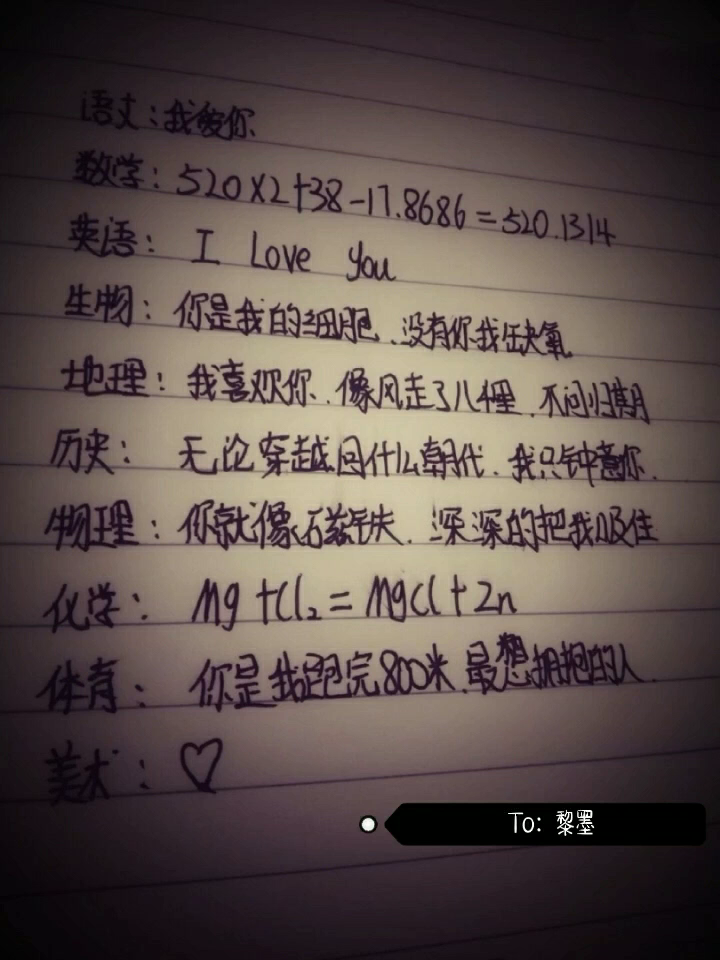 语文：我爱你
数学：520×2+38-17.8686=520.1314
英语：I Love You
生物：你是我的细胞、没有你我任缺氧
地理：我喜欢你、像风走了八千里、不问归期
历史：无论穿越回什么朝代、我只钟意你、
物理：你就像石磁铁、深深的把我吸住
化学：Mg+Cl₂=MgCl+Zn
体育：你是我跑完800米、最想拥抱的人、
美术：♡
To: 黎墨